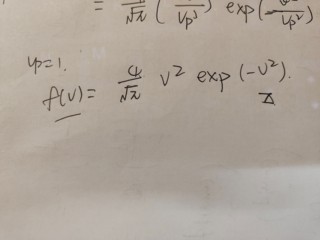 = 4/√π ( /Vp³) exp( /Vp²)
Vp=1.
f(v)= 4/√π v² exp(-v²).